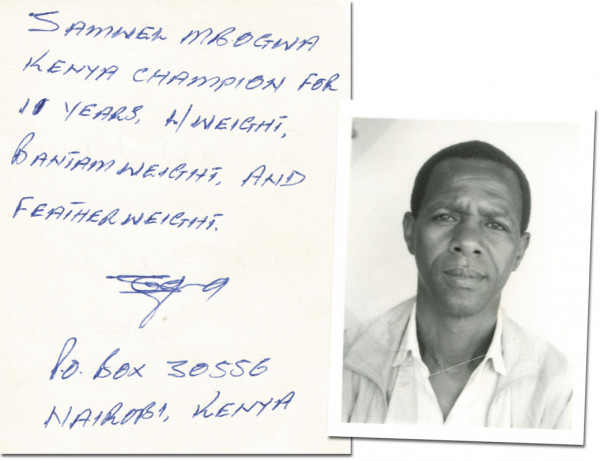 SAMWEL MBOGWA
KENYA CHAMPION FOR
11 YEARS, L/WEIGHT,
BANTAMWEIGHT, AND
FEATHERWEIGHT.
P.O. BOX 30556
NAIROBI, KENYA